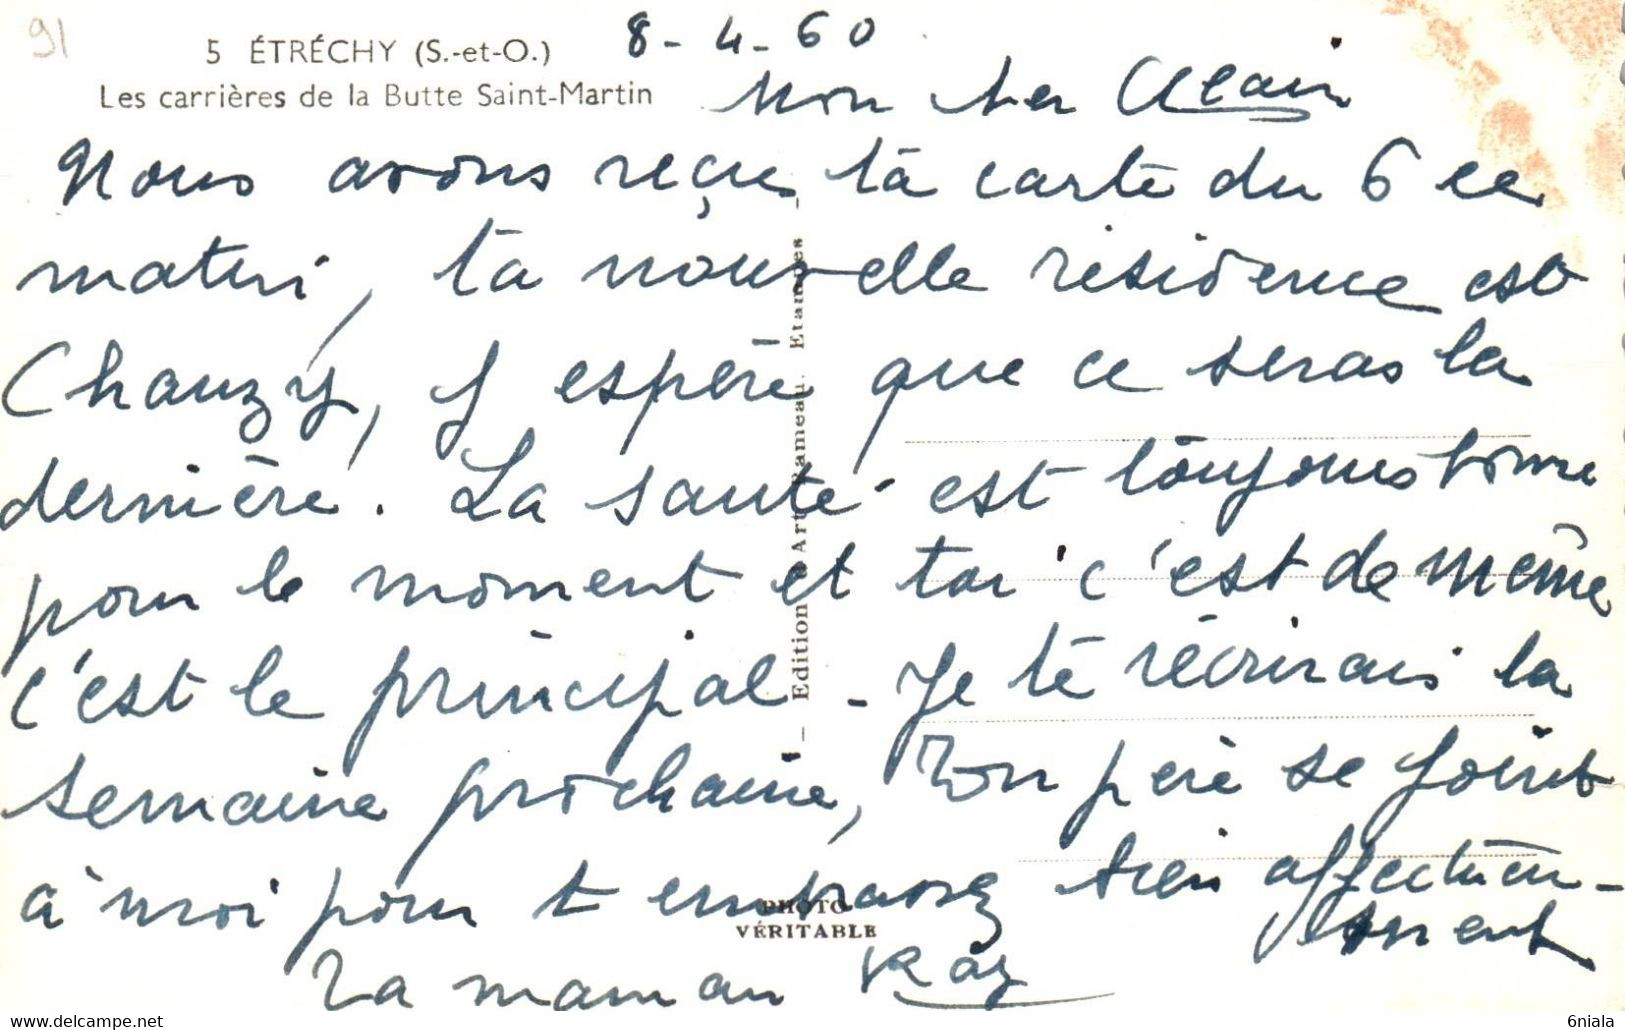 91
5 ÉTRÉCHY (S.-et-O.)
8-4-60
Les carrières de la Butte Saint-Martin
Mon cher Alain
Nous avons reçu ta carte du 6 ce
matin, ta nouvelle résidence est
Chanzy, j espère que ce seras la
dernière. La santé est toujours bonne
pour le moment et toi c'est de même
c'est le principal - Je te récrirais la
semaine prochaine, Ton père se joint
à moi pour t embrasser bien affectueu-
sement
Ta maman
— Edition d'Art Rameau. Etampes —
PHOTO
VÉRITABLE
www.delcampe.net
6niala